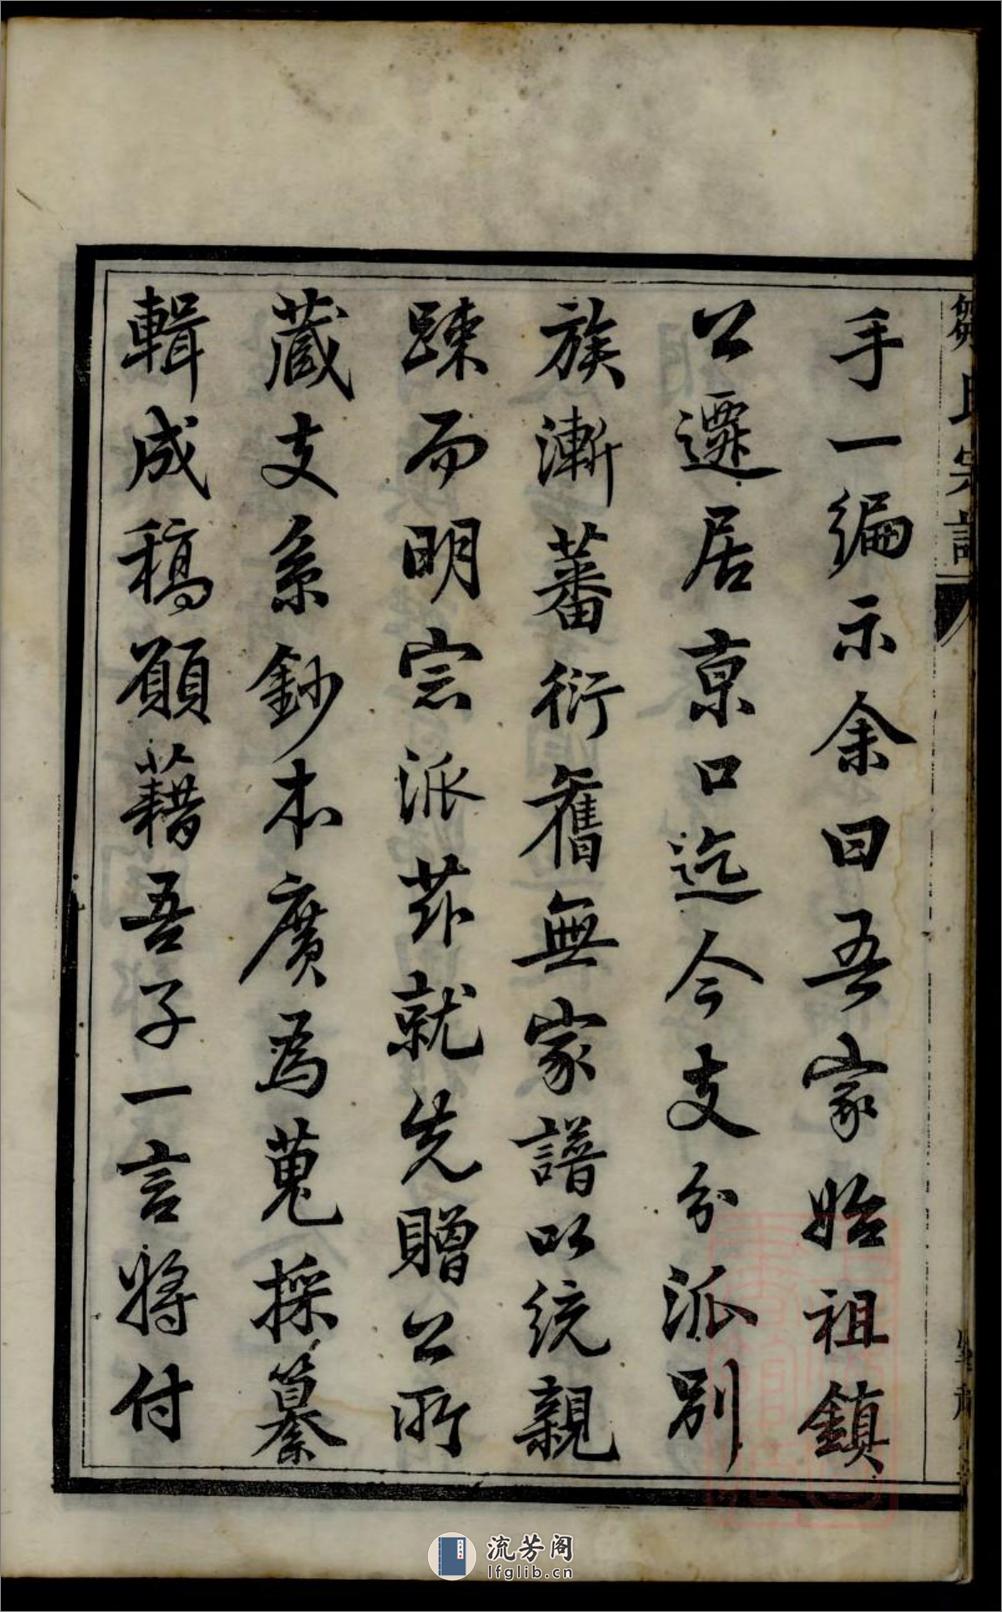 手一編示余曰吾家始祖鎮
公遷居京口迄今支分派別
族漸蕃衍舊無家譜以統親
踈而明宗派茲就先贈公所
藏支系鈔本廣為蒐採纂
輯成稿願藉吾子一言將付
氏宗譜
流芳阁
lfglib.cn